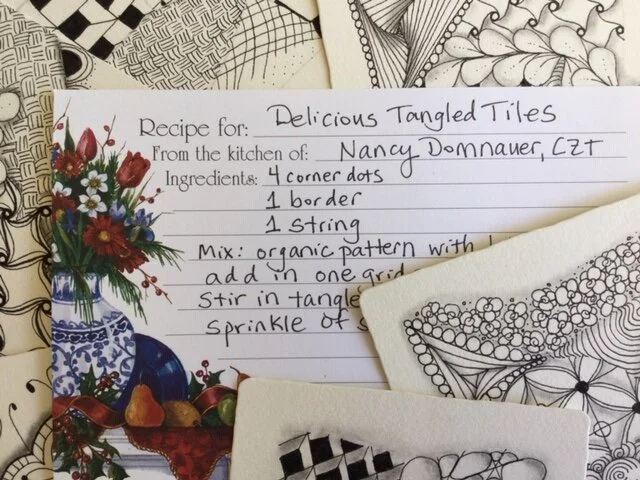 Recipe for: Delicious Tangled Tiles
From the kitchen of: Nancy Domnauer, CZT
Ingredients: 4 corner dots
1 border
1 string
Mix: organic pattern with
add in one grid
stir in tangle
sprinkle of